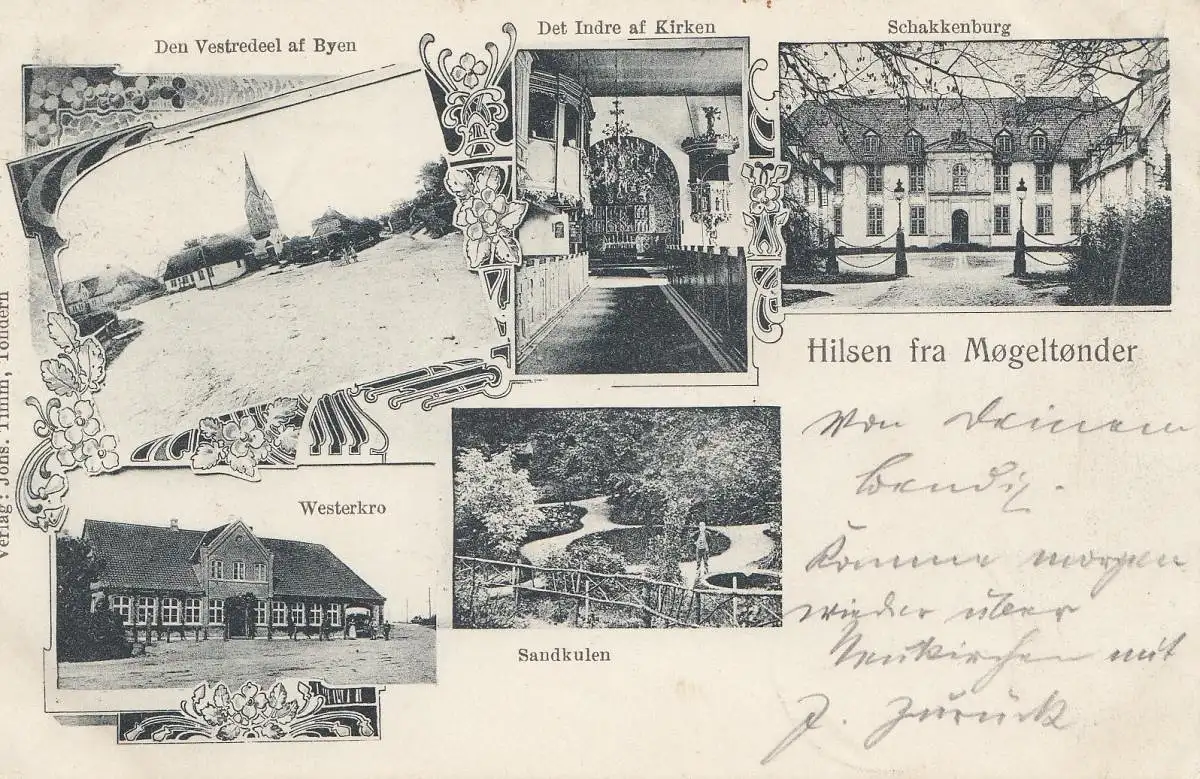 Den Vestredeel af Byen
Det Indre af Kirken
Schakkenburg
Hilsen fra Møgeltønder
Westerkro
Sandkulen
Verlag: Johs. Timm, Tondern
Von Deinem
Komme morgen
wieder über
Neukirchen mit
J. zurück